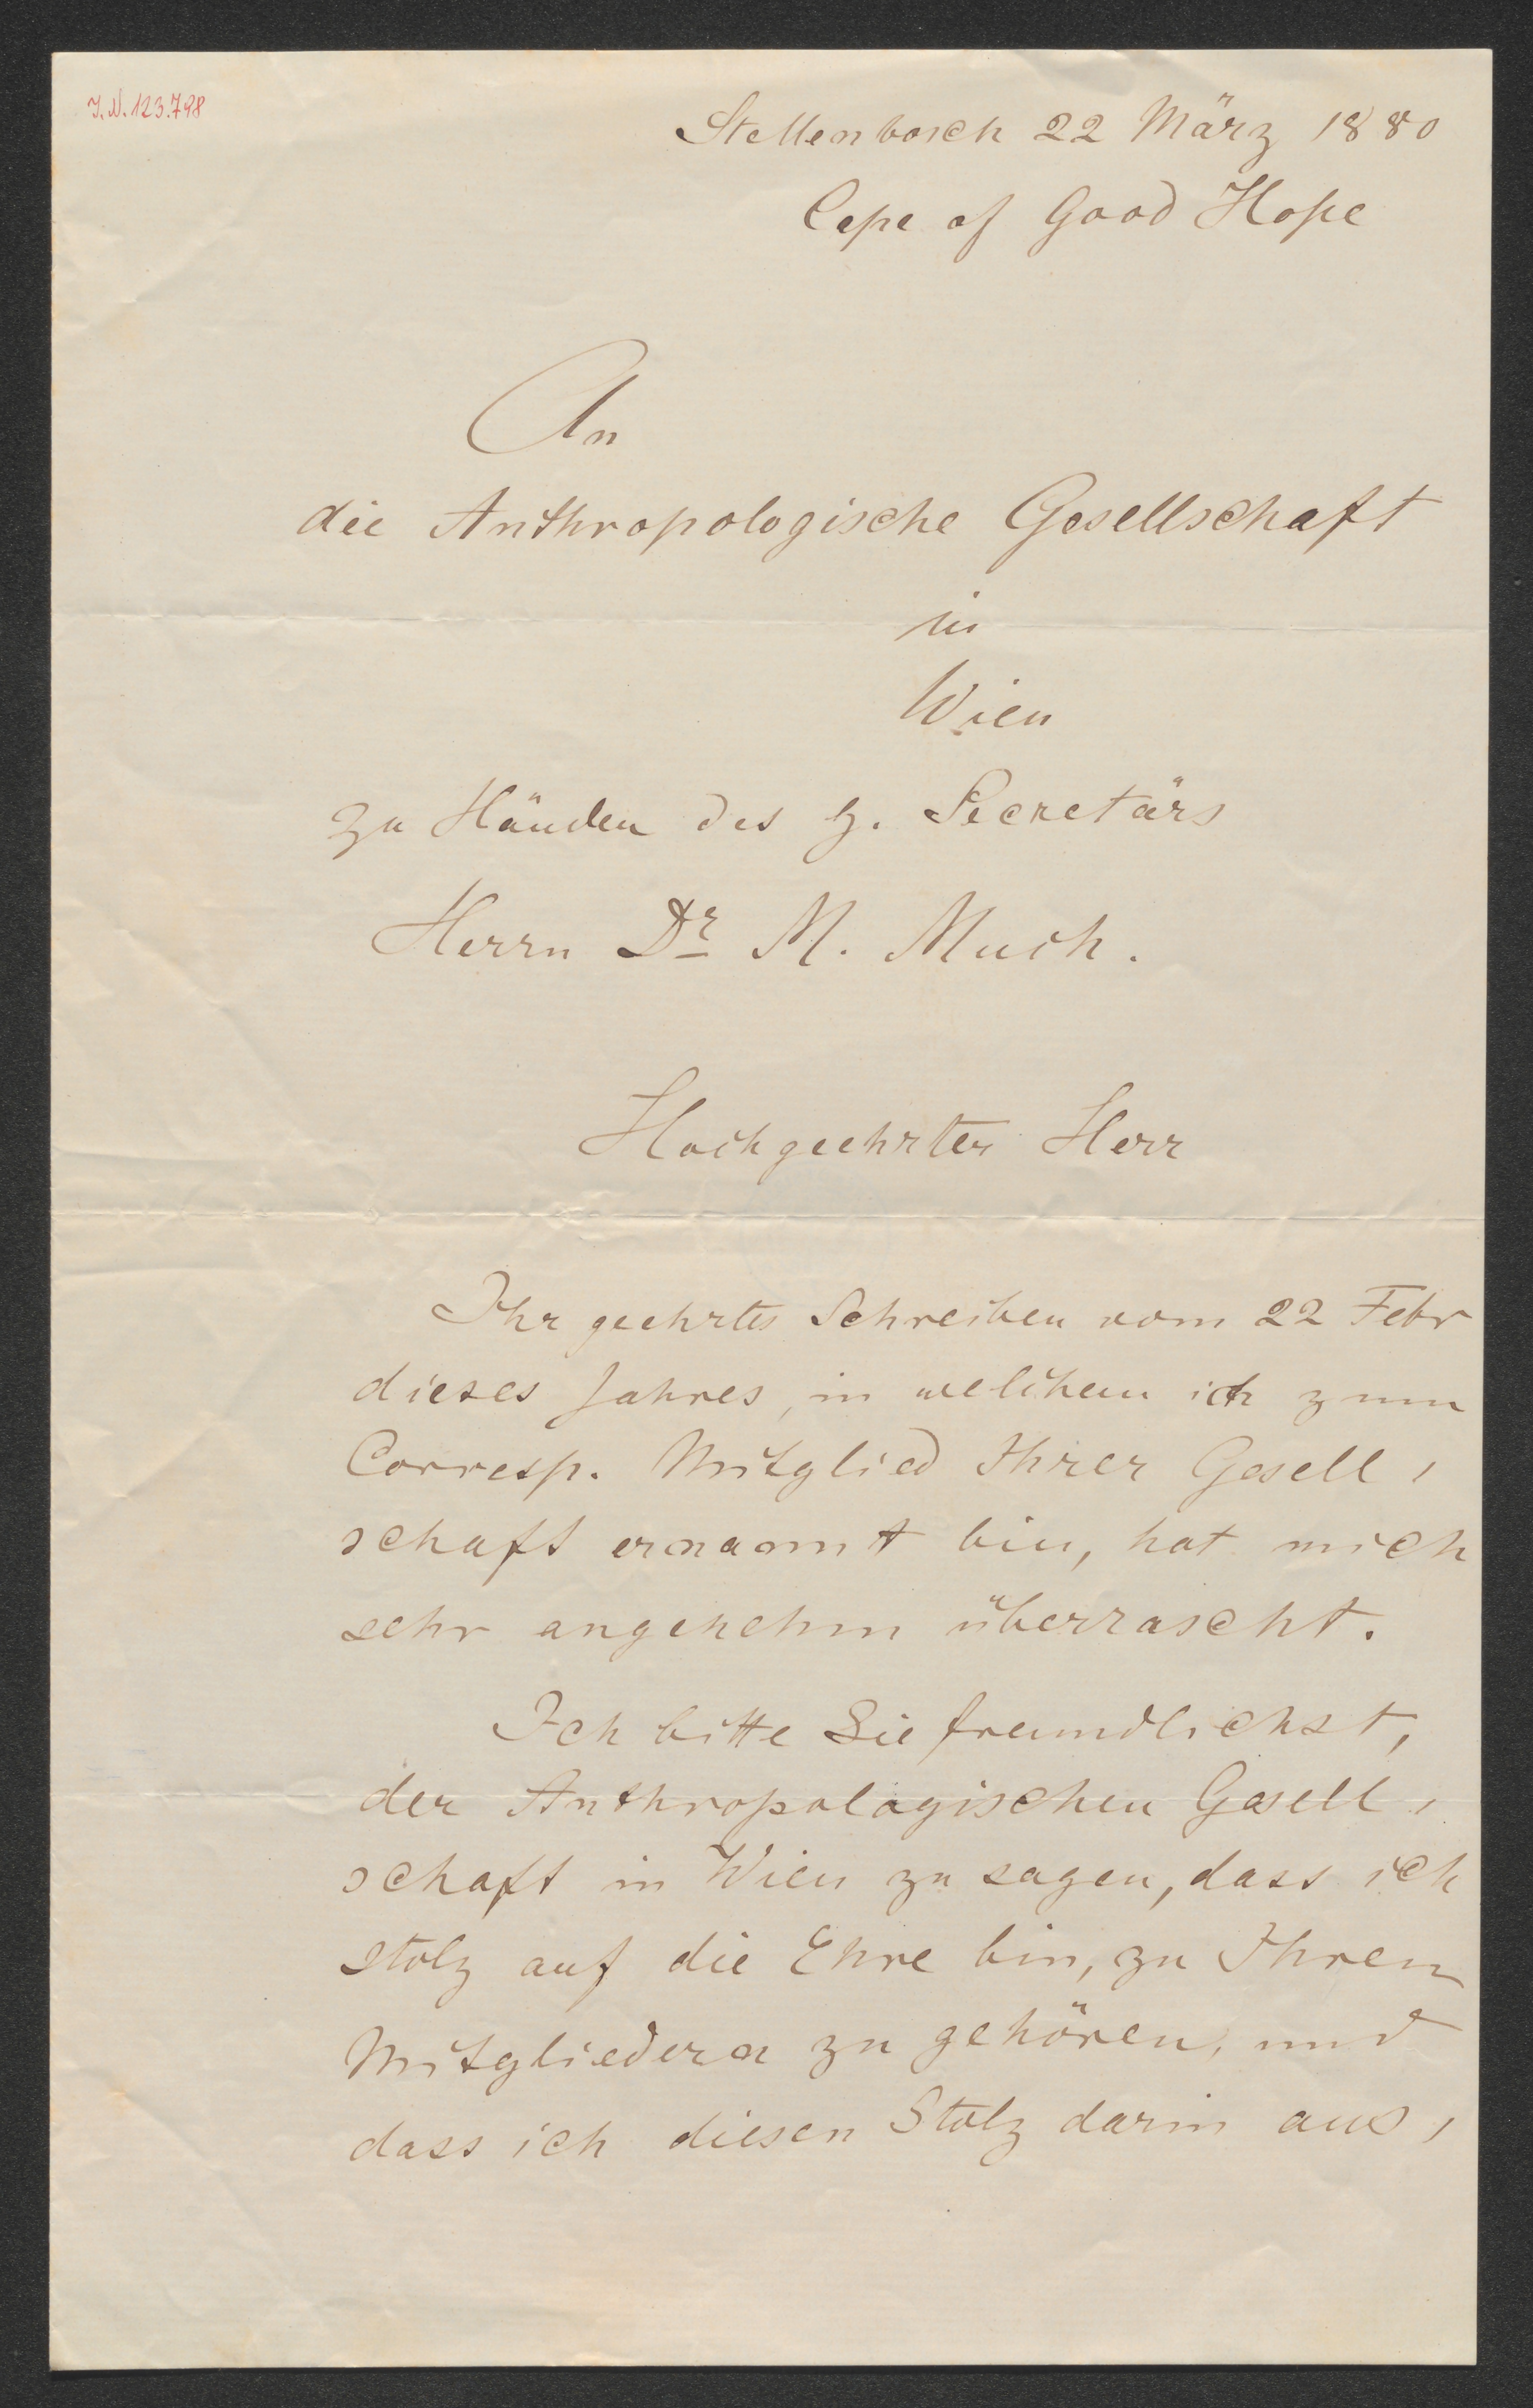 I.N. 123.798
Stellenbosch 22 März 1880
Cape of Good Hope
An
die Anthropologische Gesellschaft
in
Wien
zu Händen des h. Secretärs
Herrn Dr M. Much.
Hochgeehrter Herr
Ihr geehrtes Schreiben vom 22 Febr
dieses Jahres, in welchem ich zum
Corresp. Mitglied Ihrer Gesell,
schaft ernannt bin, hat mich
sehr angenehm überrascht.
Ich bitte Sie freundlichst,
der Anthropologischen Gesell,
schaft in Wien zu sagen, dass ich
stolz auf die Ehre bin, zu Ihren
Mitgliedern zu gehören, und
dass ich diesen Stolz darin aus,